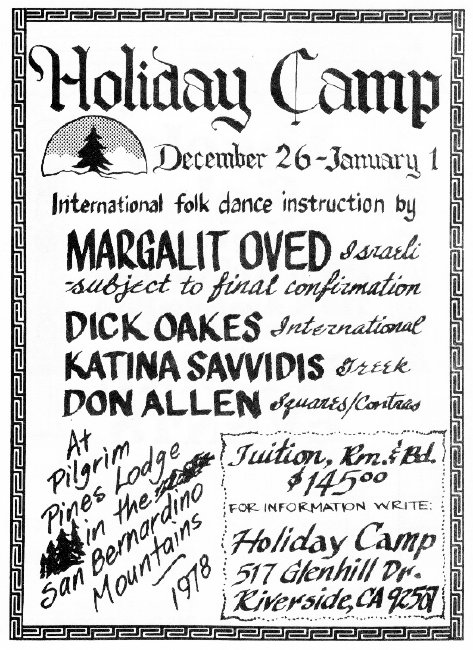 Holiday Camp
December 26-January 1
International folk dance instruction by
MARGALIT OVED Israeli
-subject to final confirmation
DICK OAKES International
KATINA SAVVIDIS Greek
DON ALLEN Squares/Contras
At
Pilgrim
Pines Lodge
in the
San Bernardino
Mountains
1978
Tuition, Rm. & Bd.
$145.00
FOR INFORMATION WRITE:
Holiday Camp
517 Glenhill Dr.
Riverside, CA 92507